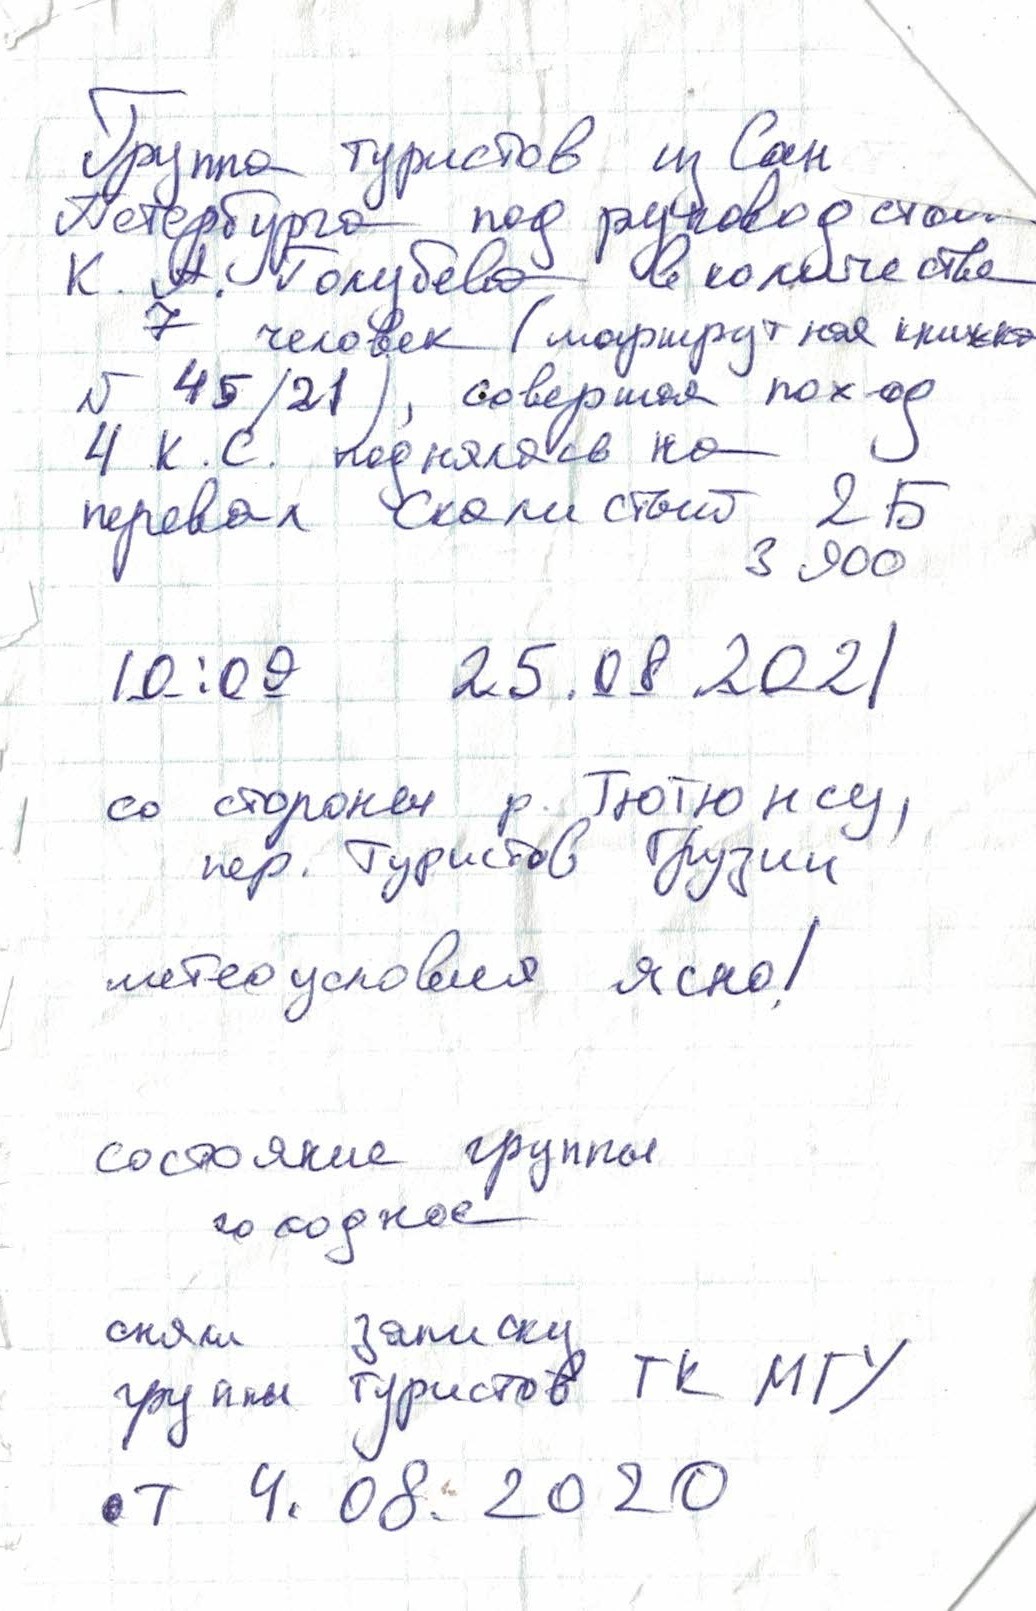 Группа туристов из Сан
Петербурга под руководством
К. А. Голубева в количестве
7 человек (маршрутная книжка
№ 45/21), совершая поход
4 к.с. поднялась на
перевал Скалистый 2Б
3900
10:09 25.08 2021
со стороны р. Тютюнсу,
пер. Туристов Грузии
метеоусловия ясно!
состояние группы
голодное
сняли записку
группы туристов ТК МГУ
от 4.08.2020